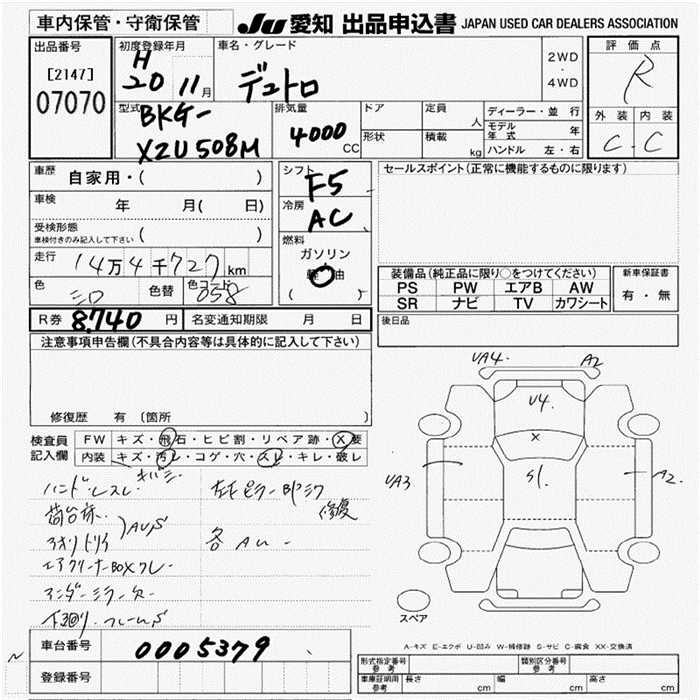 車内保管・守衛保管
JU 愛知 出品申込書 JAPAN USED CAR DEALERS ASSOCIATION
出品番号
[2147]
07070
初度登録年月
H
20 11月
車名・グレード
デュトロ
2WD
・
4WD
評価点
R
外装 内装
C . C
型式
BKG-
XZU508M
排気量
4000
CC
ドア
形状
定員
人
積載
kg
ディーラー・並行
モデル年式 年
ハンドル 左・右
車歴 自家用・( )
車検 年 月( 日)
受検形態
車検付きのみ記入して下さい ( )
走行 14万4千727km
色 シロ 色替 色コード 058
シフト
F5
冷房
AC
燃料
ガソリン
軽油
( )
セールスポイント(正常に機能するものに限ります)
装備品(純正品に限り○をつけてください)
PS PW エアB AW
SR ナビ TV カワシート
新車保証書
有・無
R券 8,740 円 名変通知期限 月 日
後日品
注意事項申告欄(不具合内容等は具体的に記入して下さい)
修復歴 有 〔箇所 〕
検査員
記入欄
FW キズ・飛石・ヒビ割・リペア跡・X要
内装 キズ・汚レ・コゲ・穴・スレ・キレ・破レ
ハンドルスレ
荷台床、
アオリトリイ
AUS
エアクリーナーBOXワレ
アンダーミラー欠
下廻り、フレームS
修復
各 AU
UA4. A2
U4.
X
S1.
UA3
A2.
スペア
A-キズ E-エクボ U-凹み W-補修跡 S-サビ C-腐食 XX-交換済
車台番号 0005379
登録番号
形式指定番号
参考
類別区分番号
参考
車庫証明用
参考
長さ cm 幅 cm 高さ cm